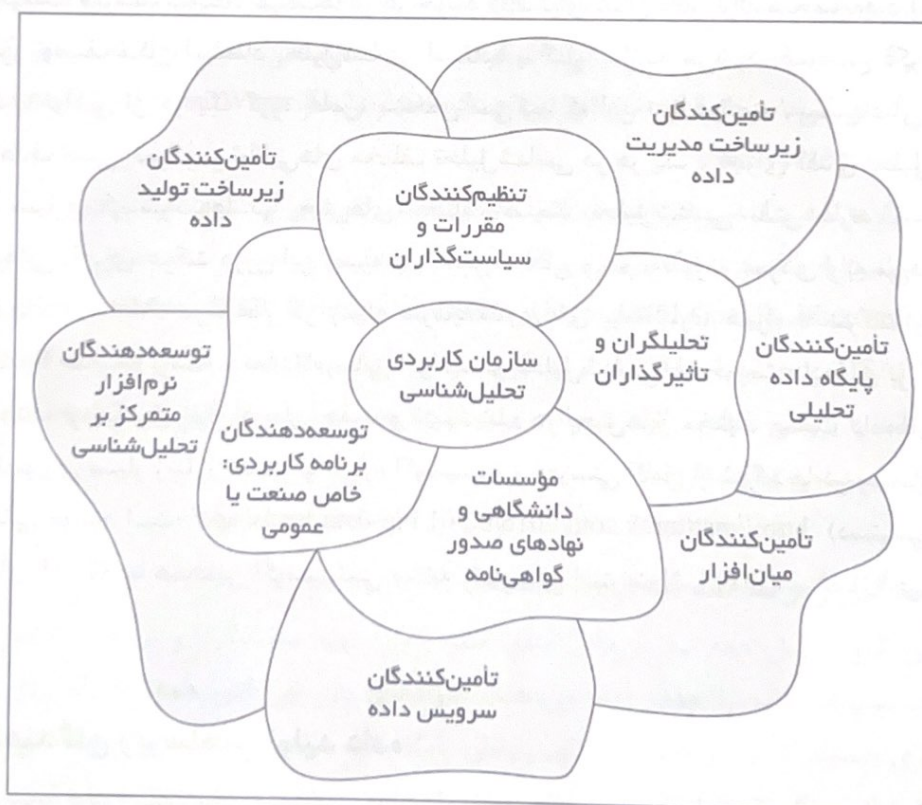 تأمین‌کنندگان
زیرساخت مدیریت
داده
تأمین‌کنندگان
زیرساخت تولید
داده
تنظیم‌کنندگان
مقررات و
سیاست‌گذاران
تأمین‌کنندگان
پایگاه داده
تحلیلی
تحلیلگران و
تأثیرگذاران
سازمان کاربردی
تحلیل‌شناسی
توسعه‌دهندگان
نرم‌افزار
متمرکز بر
تحلیل‌شناسی
توسعه‌دهندگان
برنامه کاربردی:
خاص صنعت یا
عمومی
مؤسسات
دانشگاهی و
نهادهای صدور
گواهی‌نامه
تأمین‌کنندگان
میان‌افزار
تأمین‌کنندگان
سرویس داده